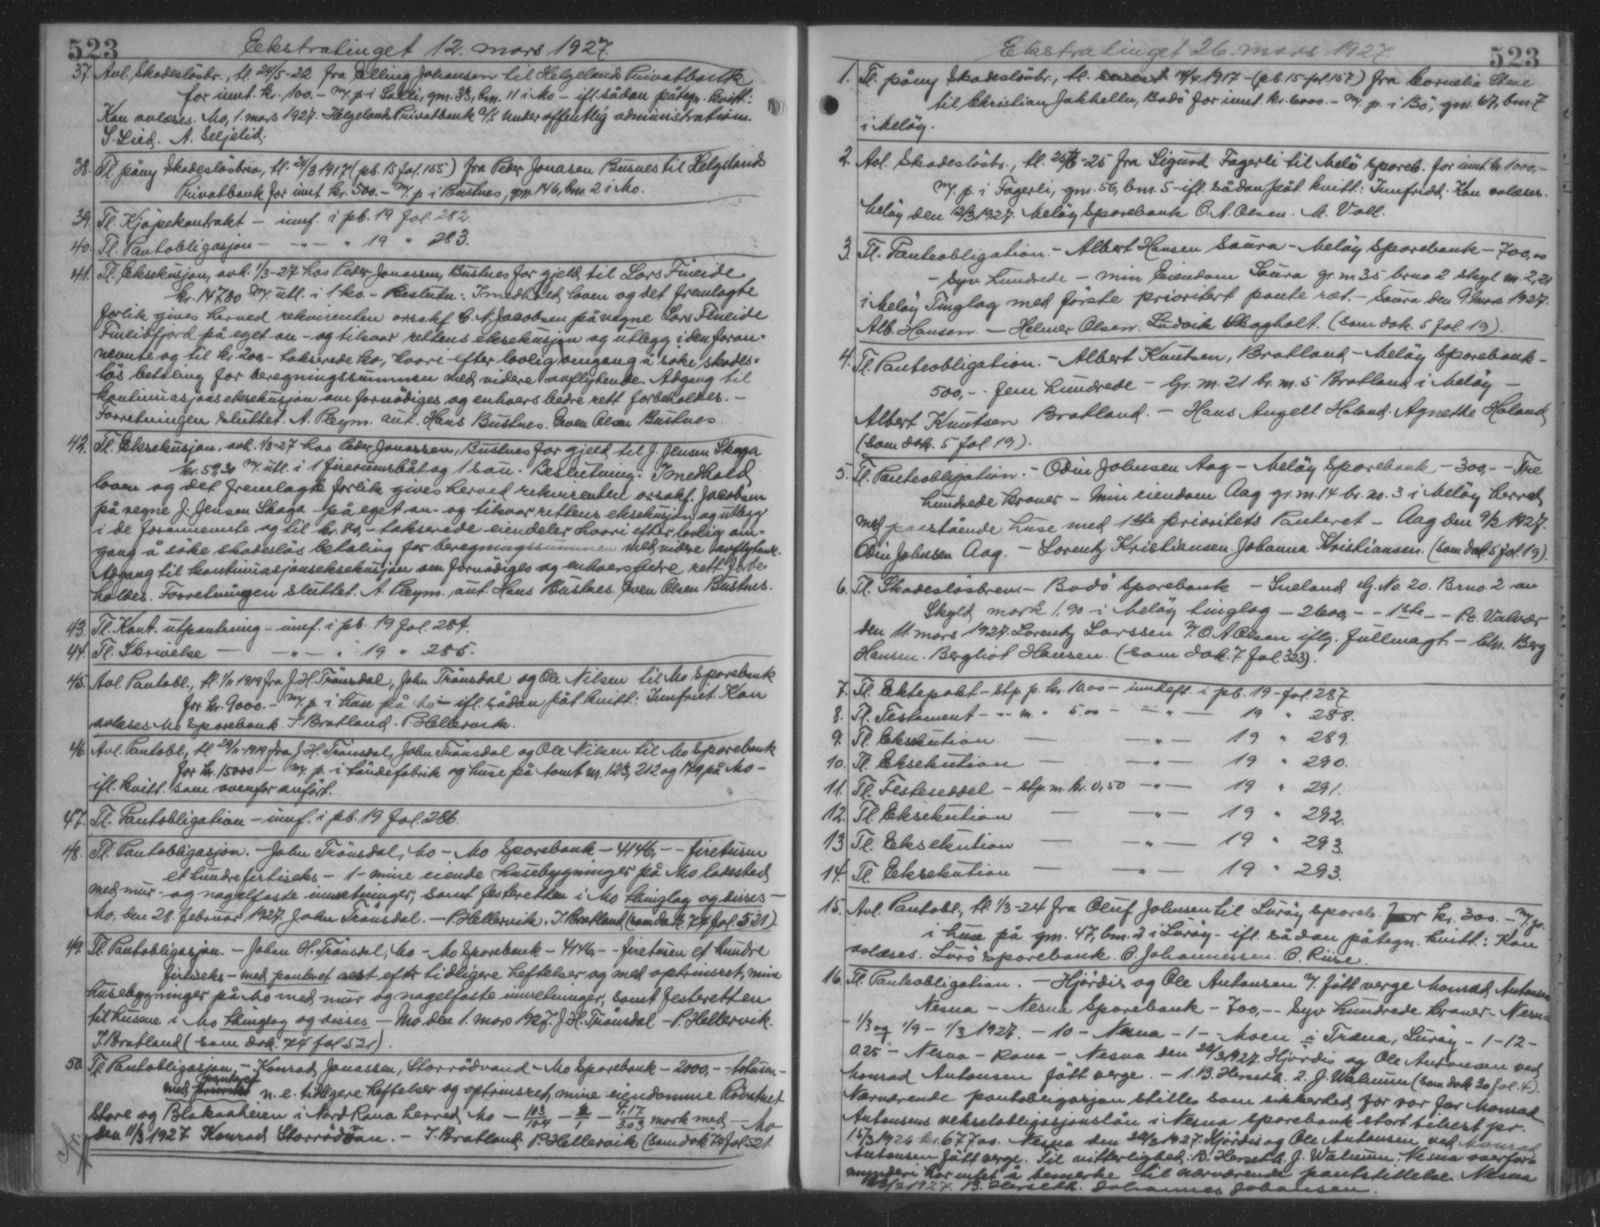 523 Ekstratinget 12. mars 1927.
37. Avl. Skadeslösbr., tl. 24/5-22 fra Elling Johansen til Helgelands Privatbank
for innt. kr. 100,- m/ p. i gnr. 33, bnr. 11 i Mo - ifl. sådan påtegn. kvitt.:
Kan avlæses. Mo, 1. mars 1927. Helgelands Privatbank A/S under offentlig administration.
S. Lied. A. Seljelid.
38. Tl. påny Skadeslösbrev, tl. 21/3 1917 (pb. 15 fol. 155) fra Peder Jonassen Busnes til Helgelands
Privatbank for innt kr. 500.- m/ p. i Bustnes, gnr. 146, bnr. 2 i Mo.
39. Tl. Kjöpekontrakt - innf. i pb. 19 fol. 282.
40. Tl. Pantobligasjon - " - " 19 " 283.
41. Tl. Eksekusjon, avh. 1/3-27 hos Peder Jonassen, Bustnes for gjeld til Lars Fineide
kr. 147.80 m/ utl. i 1 ko. - Beslutn.: I medhold av loven og det fremlagte
forlik gives herved rekvirenten orsakf. C. N. Jacobsen på vegne Lars Fineide
Fineidfjord på eget an- og tilsvar rettens eksekusjon og utlegg i den foran-
nevnte og til kr. 200,- takserede ko, hvori efter lovlig omgang å söke skades-
lös betaling for beregningssummen med videre avflytende. Adgang til
kontinuasjonseksekusjon om fornödiges og enhvers bedre rett forbeholdes. -
Forretningen sluttet. A. Pleym. aut. Hans Bustnes. Even Olsen Bustnes.
42. Tl. Eksekusjon, avh. 1/3-27 hos Peder Jonassen, Bustnes for gjeld til J. Jensen Skaga
kr. 59.30 m/ utl. i 1 færingsbåt og 1 sau. Beslutning: I medhold
loven og det fremlagte forlik gives herved rekvirenten orsakf. Jacobsen
på vegne J. Jensen Skaga på eget an- og tilsvar rettens eksekusjon og utlegg
i de forannevnte og til kr. 80,- takserede eiendeler hvori efter lovlig om-
gang å söke skadeslös betaling for beregningssummen med videre avflytende.
Adgang til kontinuasjonseksekusjon om fornödiges og enhvers bedre rett forbe-
holdes. Forretningen sluttet. A. Pleym. aut. Hans Bustnes. Even Olsen Bustnes.
43. Tl. Kont. utpantning - innf. i pb. 19 fol. 284.
44. Tl. Skrivelse - " - " 19 " 285.
45. Avl. Pantobl., tl. 1/11 1919 fra J. H. Trönsdal, John Trönsdal og Ole Nilsen til Mo Sparebank
for kr. 9000.- m/ p. i hus på Mo - ifl. sådan påt. kvitt: Innfriet. Kan
avlæses. Mo Sparebank. I. Bratland. P. Hellervik.
46. Avl. Pantobl., tl. 29/11-1919 fra J. H. Trönsdal, John Trönsdal og Ole Nilsen til Mo Sparebank
for kr. 15000.- m/ p. i töndefabrik og huse på tomt nr. 123, 212 og 179 på Mo -
ifl. kvitt. som ovenfor anfört.
47. Tl. Pantobligation - innf. i pb. 19 fol. 286.
48. Tl. Pantobligasjon. - John Trönsdal, Mo - Mo Sparebank - 4146,- - firetusen
et hundre førtiseks - 1 - mine eiende husebygninger på Mo ladested
med mur- og nagelfaste innretninger, samt festeretten i Mo thinglag og disses -
Mo, den 28. februar 1927. John Trönsdal. - P. Hellervik. I. Bratland (som dok. 74 fol 521).
49. Tl. Pantobligasjon. - John H. Trönsdal, Mo - Mo Sparebank - 4146,- - firetusen et hundre
førtiseks - med panteret næst efter tidligere heftelser og med oprinsret, mine
husebygninger på Mo med mur og nagelfaste innretninger, samt festeretten
til husene i Mo thinglag og disses - Mo, den 1. mars 1927. J. H. Trönsdal - P. Hellervik.
I. Bratland (som dok. 74 fol 521).
50. Tl. Pantobligasjon. - Konrad Jonassen, Storrödvand - Mo Sparebank - 2000,- - totusen -
med panteret n. e. tidligere heftelser og oprinsret, mine eiendomme Rövatnet
Store og Blakaaheien i Nord Rana herred, Mo - 103/104 - 2/1 - 1.17/3.03 mark med - Mo
den 11/3 1927. Konrad Storrödvan. - I. Bratland. P. Hellervik (som dok. 74 fol 521.
Ekstratinget 26. mars 1927. 523
1. Tl. påny Skadeslösbr., tl. 14/4 1917 - (pb. 15 fol. 157) fra Cornelia Stene
til Christian Jakhelln, Bodö for innt kr. 6000.- m/ p. i Bö, gnr. 67, bnr. 7
i Melöy.
2. Avl. Skadeslösbr., tl. 25/4-25 fra Sigurd Fagerli til Melö Spareb. for innt kr. 1000,-
m/ p. i Fagerli, gnr. 56, bnr. 5 - ifl. sådan påt kvitt: Innfridd. Kan avlæses.
Melöy den 12/3 1927. Melöy Sparebank O. A. Olsen. M. Voll.
3. Tl. Panteobligation. - Albert Hansen Saura - Melöy Sparebank - 700,00
- Syv hundrede - min Eiendom Saura gr. nr. 35 brno 2 skyl m. 2,21
i Melöy Tinglag med förste prioritert pante ret. - Saura den 9. Mars 1927.
Alb. Hansen. - Helmer Olsen. Ludvik Skagholt. (som dok. 5 fol 19).
4. Tl. Panteobligation. - Albert Knutsen, Bratland - Melöy Sparebank -
500,- - fem hundrede - Gr. nr. 21 br. nr. 5 Bratland i Melöy -
Albert Knutsen Bratland. - Hans Angell Haland. Agnethe Haland
(som dok. 5 fol 19).
5. Tl. Panteobligation. - Odin Johnsen Aag - Melöy Sparebank - 300,- - Tre
hundrede kroner - Min eiendom Aag gr. nr. 14 br. no. 3 i Melöy herred
med paastående huse med 1ste prioritets Panteret - Aag den 9/3 1927.
Odin Johnsen Aag. - Lorentz Kristiansen. Johanna Kristiansen. (som dok 5 fol 19).
6. Tl. Skadeslösbrev - Bodö Sparebank - Sneland G. No. 20. Brno 2 av
Skyld mark 1,90 - i Melöy tinglag - 2600,- - 1ste - - Pr. Valvær
den 11. mars 1927. Lorentz Larssen m/ O A Olsen iflg. fullmagt. - Chr. Berg
Hansen. Bergliot Hansen. (som dok. 7 fol. 323).
7. Tl. Ektepakt - stp. p. kr. 10.00 - innheft. i pb. 19 - fol. 287
8. Tl. Testament - " m. " 5.00 - " - 19 " 288.
9. Tl. Eksekution - " - 19 " 289.
10. Tl. Eksekution - " - 19 " 290.
11. Tl. Festeseddel - stp. m. kr. 0,50 - " - 19 " 291.
12. Tl. Eksekution - " - 19 " 292.
13. Tl. Eksekution - " - 19 " 293.
14. Tl. Eksekution - " - 19 " 293.
15. Avl. Pantobl., tl. 1/3-24 fra Oluf Johnsen til Luröy Spareb. for kr. 300.- m/ p.
i hus på gnr. 47, bnr. 2 i Luröy - ifl. sådan påtegn. kvitt: Kan
avlæses. Lurö Sparebank. O. Johannessen. O. Riise.
16. Tl. Panteobligation. - Hjördis og Ole Antonsen m/ fött verge Monrad Antonsen
Nesna - Nesna Sparebank - 700,- - Syv hundrede kroner - Nesna
- 1/3 og 1/9 - 1/3 1927. - 10 - Nesna - 1 - Moen i Træna, Luröy - 1 - 12 -
0.25 - Nesna - Rana - Nesna den 22/3 1927. Hjördis og Ole Antonsen ved
Monrad Antonsen fött verge. - 1. B. Herseth. 2. J. Walnum (som dok 30 fol. 4).
Nærværende pantobligasjon stilles som sikkerhed for vor far Monrad
Antonsens vekselobligasjonslån i Nesna Sparebank stort utbert pr.
15/3 1926 kr. 677.00. Nesna den 22/3 1927. Hjördis og Ole Antonsen ved Monrad
Antonsen fött verge. Til vitterlighed: B. Herseth. J. Walnum. Nesna overfor-
mynderi har intet å bemerke til nærværende pantstillelse. Nesna
1927. B. Herseth. Johannes Johansen.